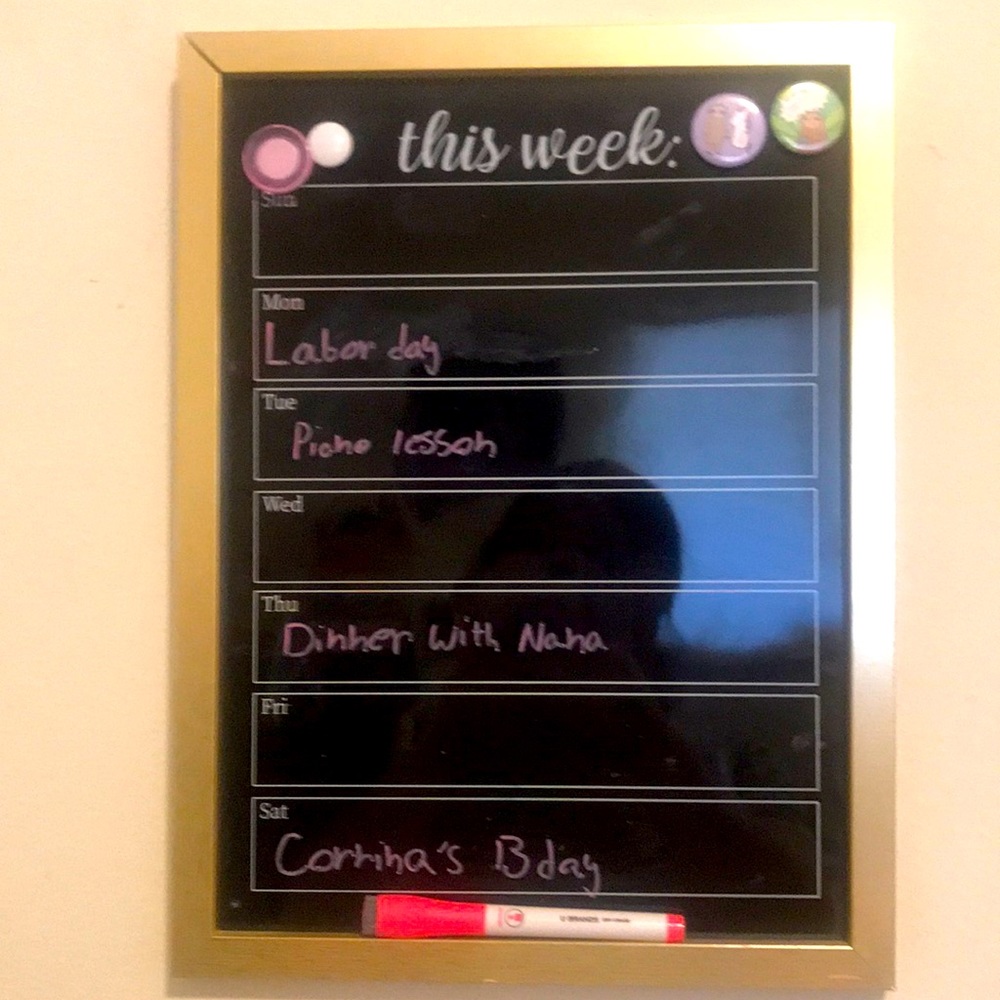 this week:
Sun
Mon
Labor day
Tue
Piano lesson
Wed
Thu
Dinner with Nana
Fri
Sat
Corrina's Bday
U BRANDS